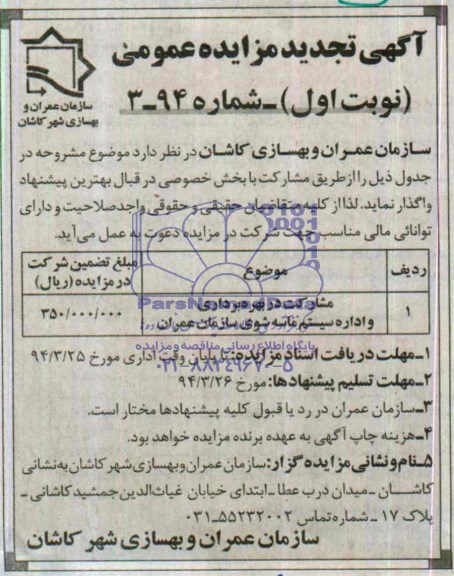 آگهی تجدید مزایده عمومی
(نوبت اول) ـ شماره ۹۴ـ۳
سازمان عمران و
بهسازی شهر کاشان
سازمان عمران و بهسازی کاشان در نظر دارد موضوع مشروحه در
جدول ذیل را از طریق مشارکت با بخش خصوصی در قبال بهترین پیشنهاد
واگذار نماید. لذا از کلیه متقاضیان حقیقی و حقوقی واجد صلاحیت و دارای
توانائی مالی مناسب جهت شرکت در مزایده دعوت به عمل می آید.
ردیف موضوع مبلغ تضمین شرکت
در مزایده (ریال)
۱ مشارکت در بهره برداری ۳۵۰/۰۰۰/۰۰۰
و اداره سیستم ماسه شوی سازمان عمران
۱ـ مهلت دریافت اسناد مزایده: تا پایان وقت اداری مورخ ۹۴/۳/۲۵
۲ـ مهلت تسلیم پیشنهادها: مورخ ۹۴/۳/۲۶
۳ـ سازمان عمران در رد یا قبول کلیه پیشنهادها مختار است.
۴ـ هزینه چاپ آگهی به عهده برنده مزایده خواهد بود.
۵ـ نام و نشانی مزایده گزار: سازمان عمران و بهسازی شهر کاشان به نشانی
کاشان ـ میدان درب عطا ـ ابتدای خیابان غیاث الدین جمشید کاشانی ـ
پلاک ۱۷ ـ شماره تماس ۵۵۲۳۲۰۰۲ـ۰۳۱
سازمان عمران و بهسازی شهر کاشان
پایگاه اطلاع رسانی مناقصه و مزایده
۰۲۱-۸۸۳۴۹۶۷۰-۵